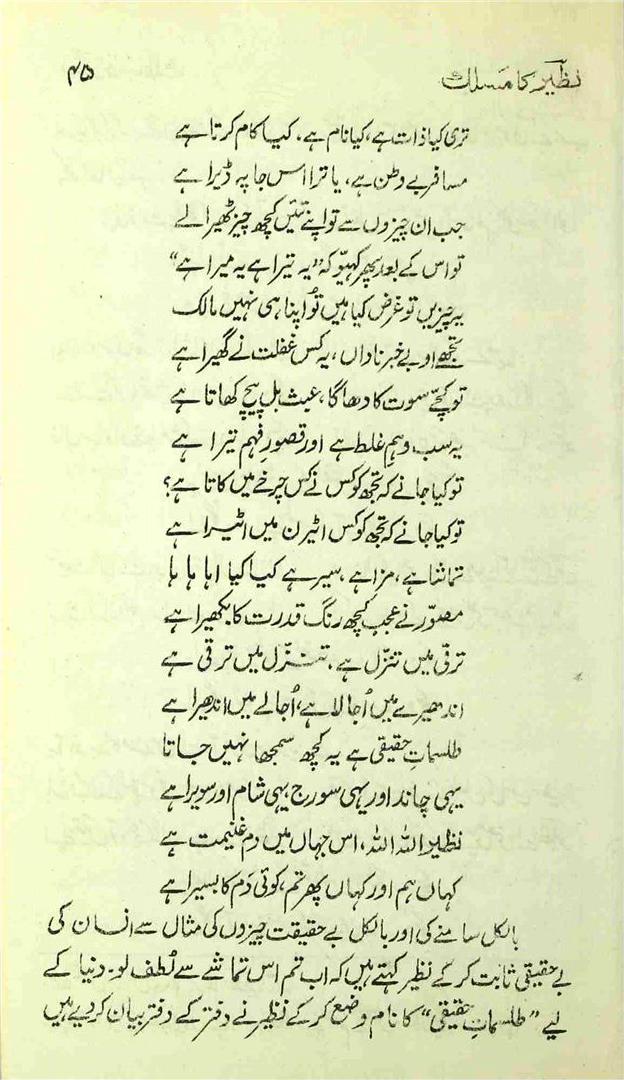 نظیر کا مسلک ۴۵
تری کیا ذات ہے، کیا نام ہے، کیا کام کرتا ہے
مسافر بے وطن ہے، یا ترا اس جا پہ ڈیرا ہے
جب ان چیزوں سے تو اپنے تئیں کچھ چیز ٹھیرا لے
تو اس کے بعد پھر کہیو کہ "یہ تیرا ہے یہ میرا ہے"
یہ چیزیں تو غرض کیا ہیں تُو اپنا ہی نہیں مالک
تجھے او بے خبر ناداں، یہ کس غفلت نے گھیرا ہے
تو کچے سوت کا دھاگا، عبث بل پیچ کھاتا ہے
یہ سب وہمِ غلط ہے اور قصورِ فہم تیرا ہے
تو کیا جانے کہ تجھ کو کس نے کس چرخے میں کاتا ہے؟
تو کیا جانے کہ تجھ کو کس اٹیرن میں اٹیرا ہے
تماشا ہے، مزا ہے، سیر ہے کیا کیا اہا ہا ہا
مصوّر نے عجب کچھ رنگ قدرت کا بکھیرا ہے
ترقی میں تنزّل ہے، تنزّل میں ترقی ہے
اندھیرے میں اُجالا ہے، اُجالے میں اندھیرا ہے
طلسماتِ حقیقی ہے یہ کچھ سمجھا نہیں جاتا
یہی چاند اور یہی سورج، یہی شام اور سویرا ہے
نظیر اللہ اللہ، اس جہاں میں دم غنیمت ہے
کہاں ہم اور کہاں پھر تم، کوئی دَم کا بسیرا ہے
بالکل سامنے کی اور بالکل بے حقیقت چیزوں کی مثال سے انسان کی
بے حقیقی ثابت کر کے نظیر کہتے ہیں کہ اب تم اس تماشے سے لُطف لو۔ دنیا کے
لیے "طلسماتِ حقیقی" کا نام وضع کر کے نظیر نے دفتر کے دفتر بیان کر دیے ہیں